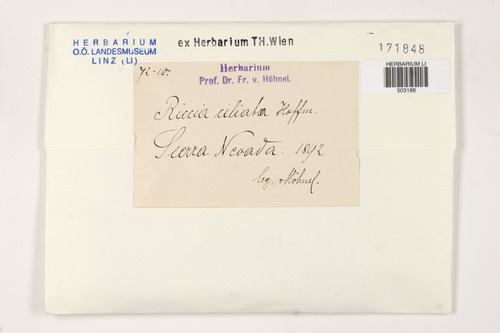 HERBARIUM
O.Ö. LANDESMUSEUM
LINZ (LI)
ex Herbarium TH.Wien
171848
HERBARIUM LI
503186
Herbarium
Prof. Dr. Fr. v. Höhnel.
Riccia ciliata Hoffm.
Sierra Nevada. 1892
leg. v Höhnel.